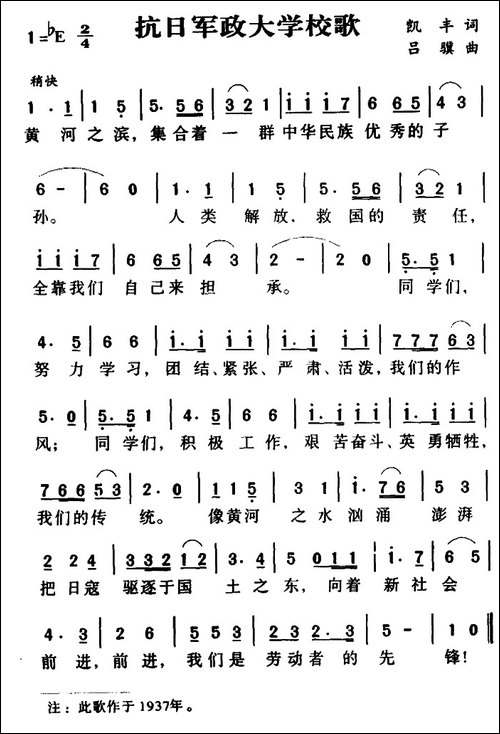 抗日军政大学校歌
1=♭E 2/4
凯丰 词
吕骥 曲
稍快
1· 1 | 1 5 | 5· 56 | 321 | i i i 7 | 6 65 | 4 3 |
黄河之滨，集合着一群中华民族优秀的子
6 - | 6 0 | 1· 1 | 1 5 | 5· 56 | 321 |
孙。人类解放，救国的责任，
i i i 7 | 6 65 | 4 3 | 2 - | 2 0 | 5· 5 1 |
全靠我们自己来担承。同学们，
4· 5 | 6 6 | i· i i i | i· i i i | 7 7 7 63 |
努力学习，团结、紧张、严肃、活泼，我们的作
5· 0 | 5· 5 1 | 4· 5 | 6 6 | i· i i i | i· i i i |
风；同学们，积极工作，艰苦奋斗、英勇牺牲，
76653 | 2· 0 | 115 | 3 1 | i· 76 | 5 3 |
我们的传统。像黄河之水汹涌澎湃
2 24 | 33212 | 3· 4 | 5 011 | i· 7 | 6 5 |
把日寇驱逐于国土之东，向着新社会
4· 3 | 2 6 | 5 53 | 23 2· 3 | 5 - | 1 0 ‖
前进，前进，我们是劳动者的先锋！
注：此歌作于1937年。